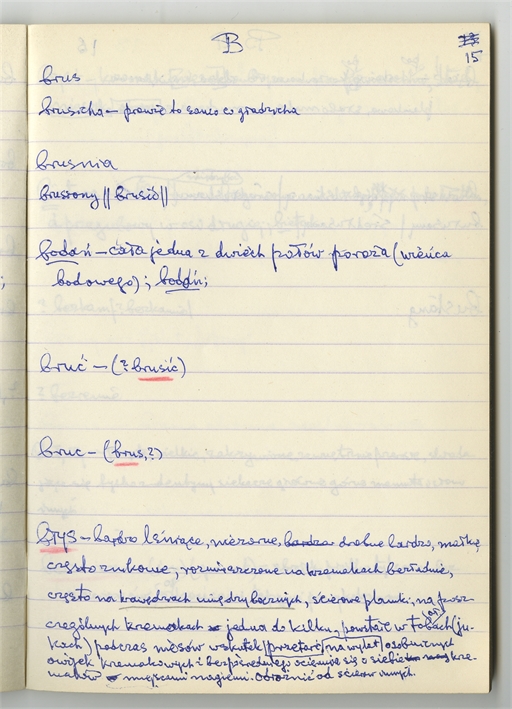 B
15
brus
brusicha – prawie to samo co gradzicha
brusnia
bruszony || brusić ||
bodań – cała jedna z dwiech połów poroża (wieńca
bodowego); bodań;
bruć – (? brusić)
bruc – (brus, ?)
BŁYS – barbro lśniące, nieżarne, bardzo drobne bardzo, matkę
często znikowe, rozmieszczone na krzemakach bezładnie,
często na krawędziach międzybocznych, ścierowe plamki, na poszczególnych
krzemakach jedna do kilku, powstałe w łobach (jukach)
podczas niesów wskutek przetarć na wylot osobniczych
owijek krzemakowych i bezpośredniego ocierania się o siebie krzemaków
miejscami nagiemi. Odróżnić od ścierów innych.